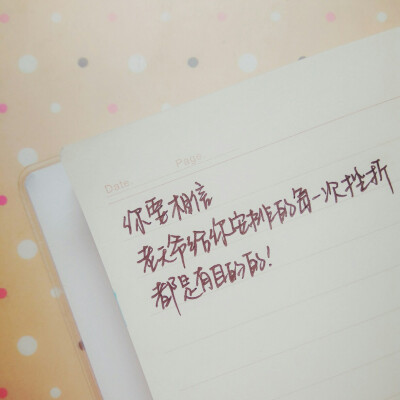 Date Page
你要相信
老天爷给你安排的每一次挫折
都是有目的的!